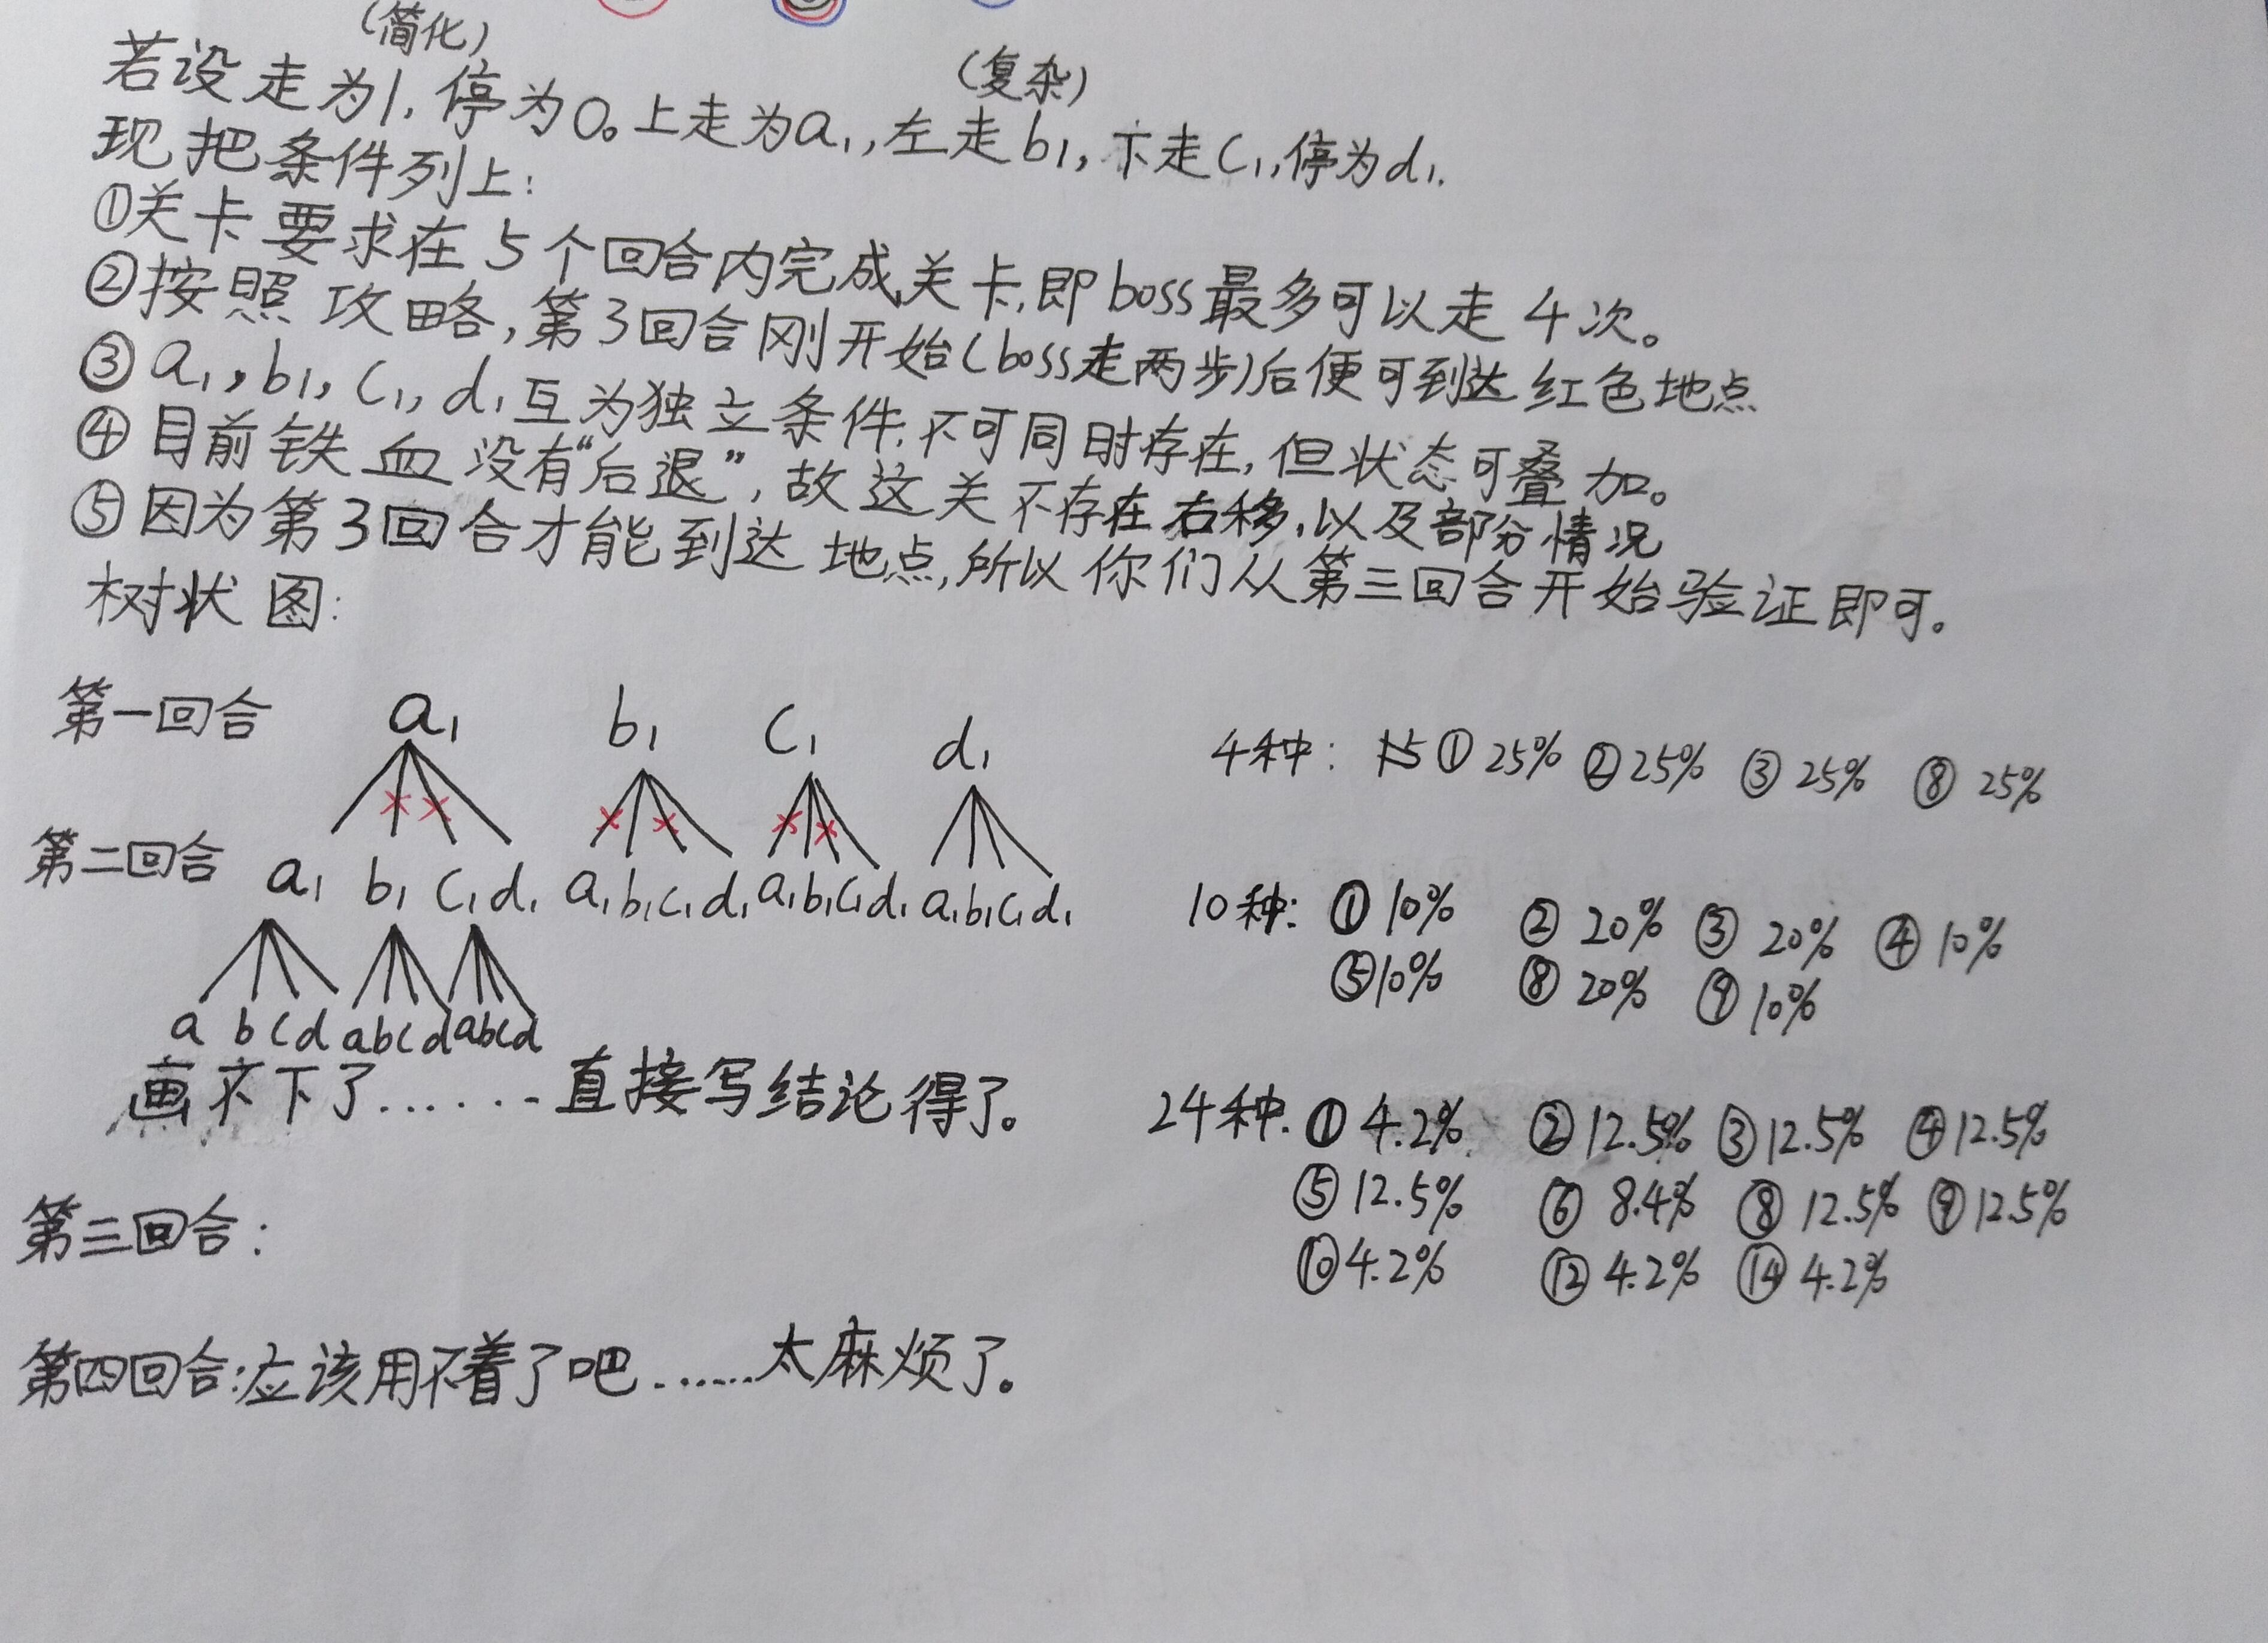 (简化)
(复杂)
若设走为1,停为0。上走为a1,左走b1,下走C1,停为d1.
现把条件列上:
①关卡要求在5个回合内完成关卡,即boss最多可以走4次。
②按照攻略,第3回合刚开始(boss走两步)后便可到达红色地点
③a1,b1,C1,d1互为独立条件.不可同时存在,但状态可叠加。
④目前铁血没有“后退”,故这关不存在右移,以及部分情况
⑤因为第3回合才能到达地点,所以你们从第三回合开始验证即可。
树状图:
第一回合 a1 b1 C1 d1 4种: ①25% ②25% ③25% ⑧25%
第二回合 a1 b1 C1 d1 a1 b1 C1 d1 a1 b1 C1 d1 a1 b1 C1 d1 10种: ①10% ②20% ③20% ④10%
⑤10% ⑧20% ⑨10%
a b c d a b c d a b c d
画不下了......直接写结论得了。 24种: ①4.2% ②12.5% ③12.5% ④12.5%
⑤12.5% ⑥8.4% ⑧12.5% ⑨12.5%
第三回合: ⑩4.2% ⑫4.2% ⑭4.2%
第四回合:应该用不着了吧......太麻烦了。